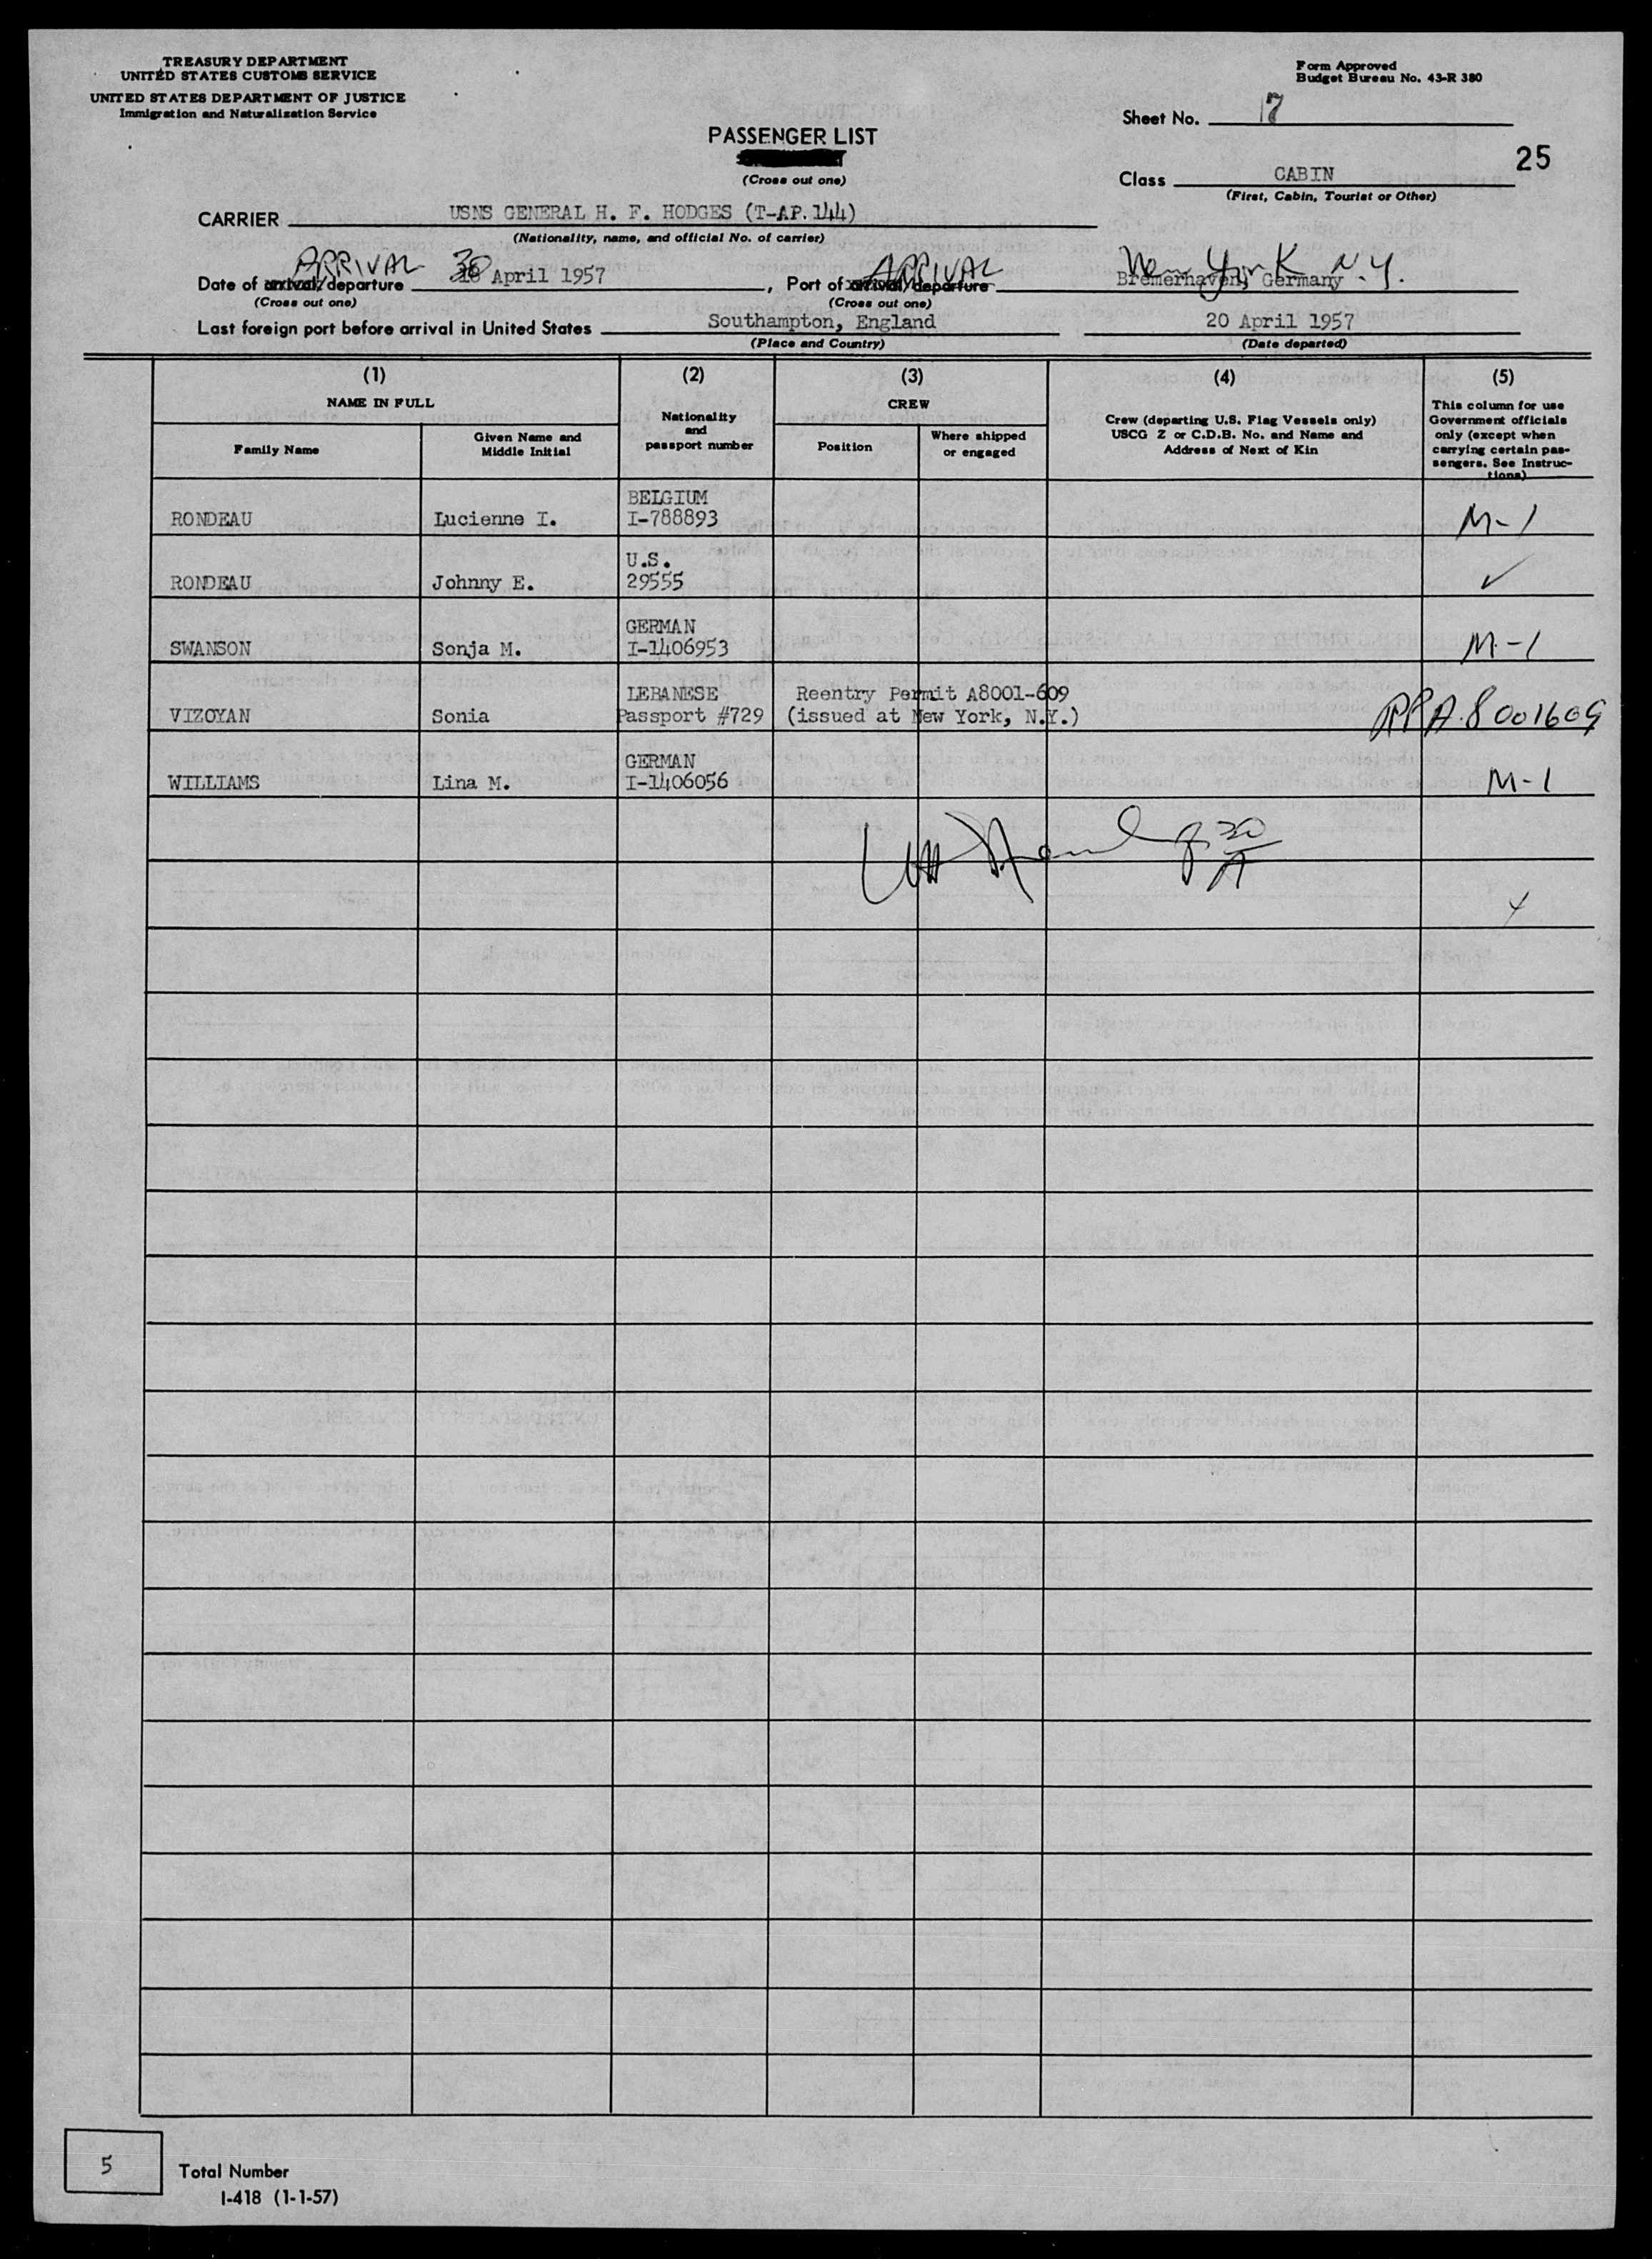 TREASURY DEPARTMENT
UNITED STATES CUSTOMS SERVICE
UNITED STATES DEPARTMENT OF JUSTICE
Immigration and Naturalization Service
Form Approved
Budget Bureau No. 43-R 380
Sheet No. 17
PASSENGER LIST
(Cross out one)
25
Class CABIN
(First, Cabin, Tourist or Other)
CARRIER USNS GENERAL H. F. HODGES (T-AP.144)
(Nationality, name, and official No. of carrier)
ARRIVAL ARRIVAL New York N.Y.
Date of arrival/departure 30 April 1957, Port of arrival/departure Bremerhaven, Germany
(Cross out one) (Cross out one)
Last foreign port before arrival in United States Southampton, England 20 April 1957
(Place and Country) (Date departed)
(1) (2) (3) (4) (5)
NAME IN FULL
Family Name
Given Name and
Middle Initial
Nationality
and
passport number
CREW
Position
Where shipped
or engaged
Crew (departing U.S. Flag Vessels only)
USCG Z or C.D.B. No. and Name and
Address of Next of Kin
This column for use
Government officials
only (except when
carrying certain pas-
sengers. See Instruc-
tions)
BELGIUM
RONDEAU Lucienne I. I-788893 M-1
U.S.
RONDEAU Johnny E. 29555 ✓
GERMAN
SWANSON Sonja M. I-1406953 M-1
LEBANESE Reentry Permit A8001-609
VIZOYAN Sonia Passport #729 (issued at New York, N.Y.) RPA.8001609
GERMAN
WILLIAMS Lina M. I-1406056 M-1
30
A
5 Total Number
I-418 (1-1-57)